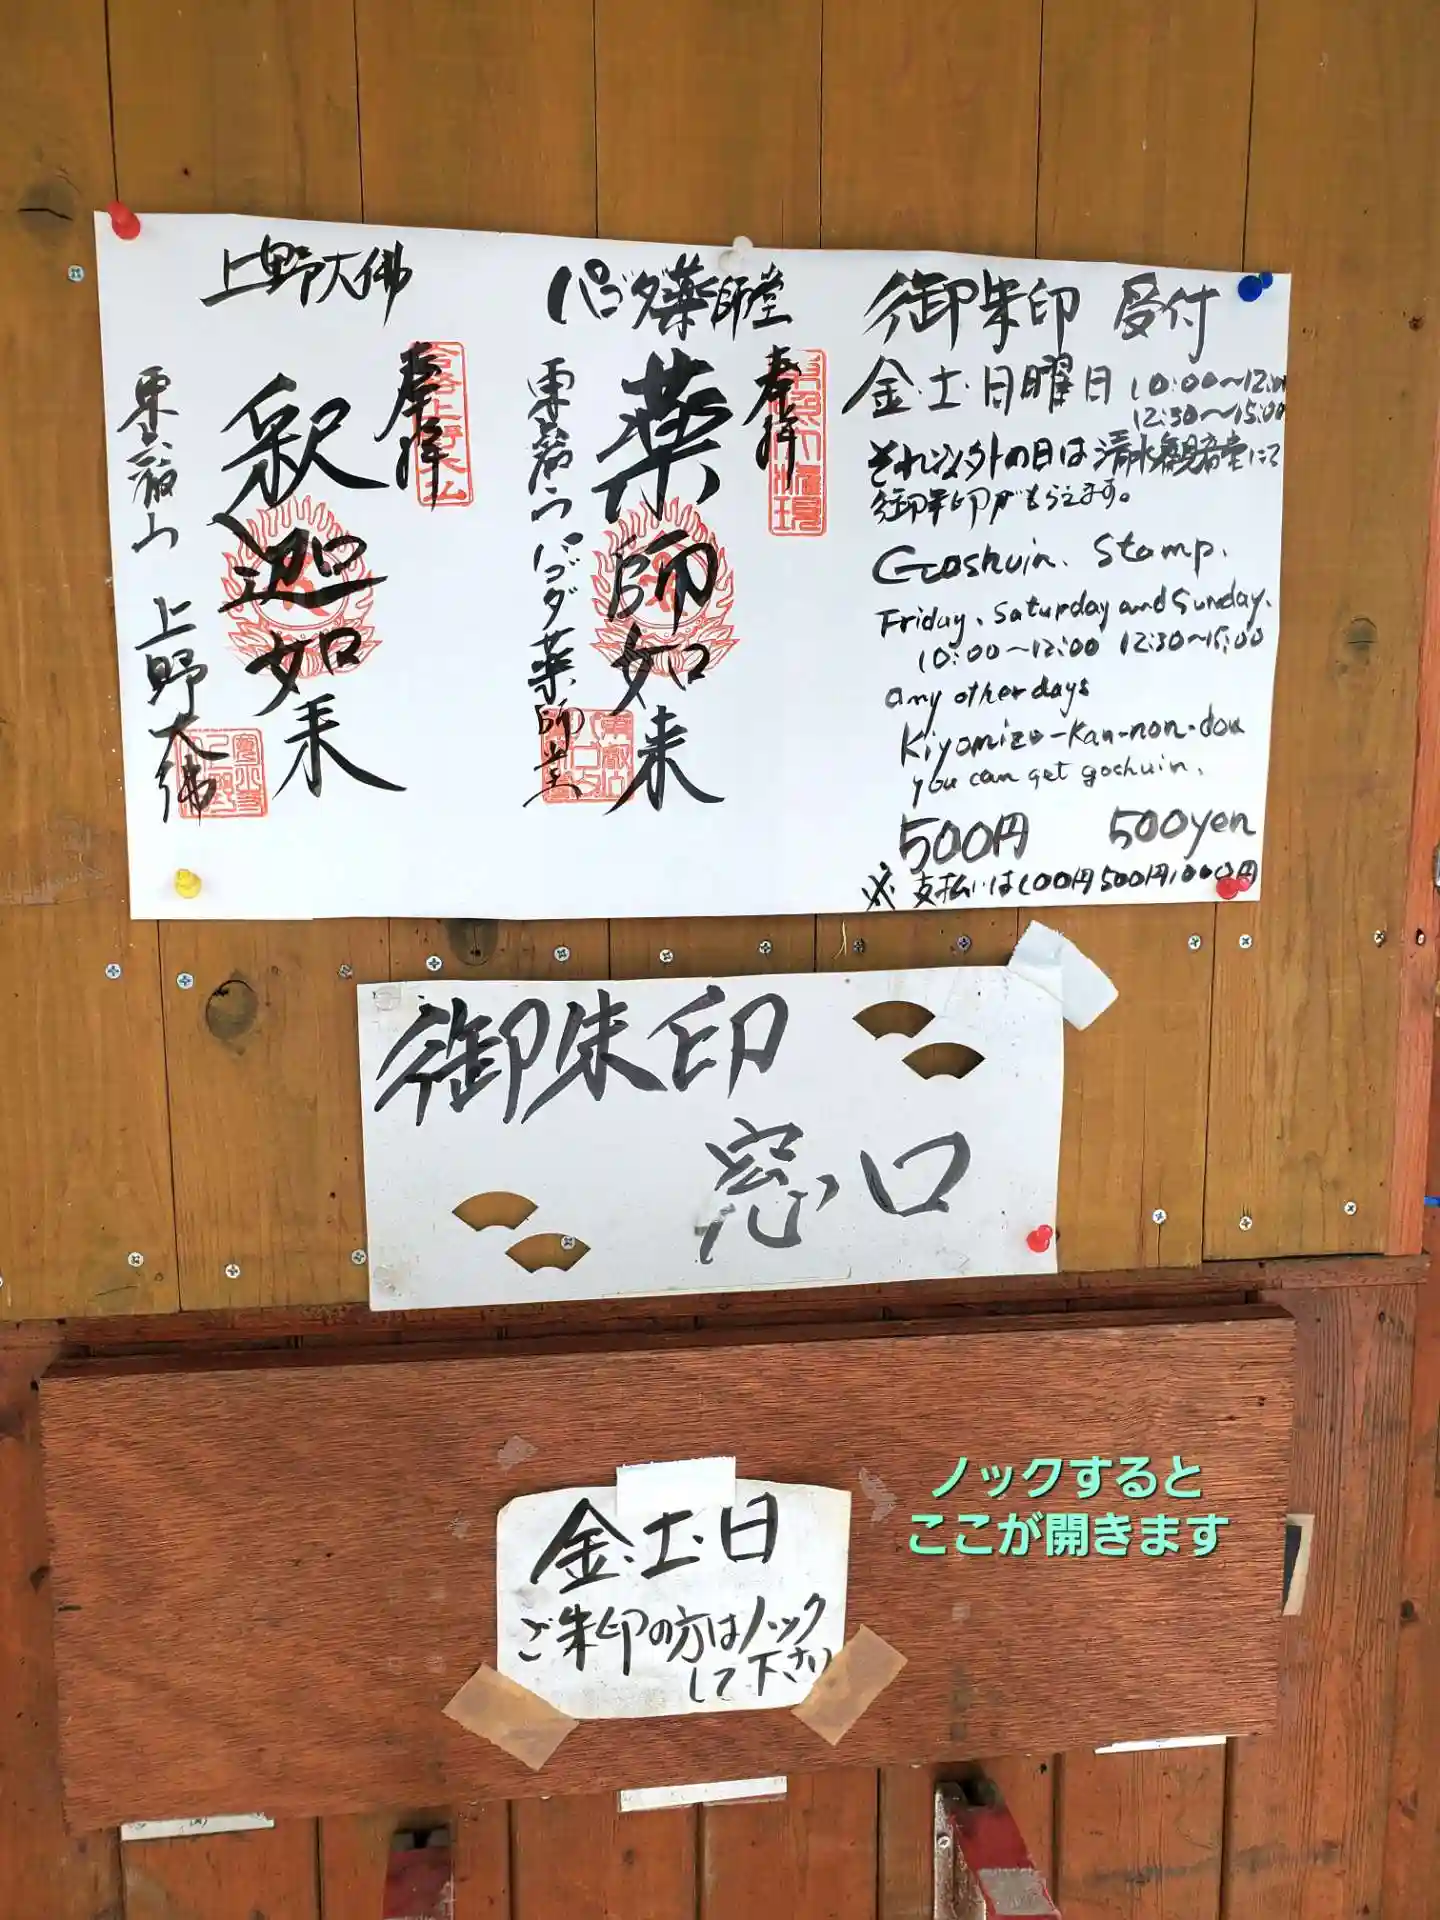 上野大佛
奉拝
釈迦如来
東叡山 上野大佛
パゴダ薬師堂
奉拝
薬師如来
東叡山 パゴダ薬師堂
御朱印 受付
金・土・日曜日 10:00〜12:00
12:30〜15:00
それ以外の日は清水観音堂にて
御朱印がもらえます。
Goshuin. Stamp.
Friday, Saturday and Sunday.
10:00〜12:00 12:30〜15:00
any other days
Kiyomizo-Kan-non-dou
you can get goshuin.
500円 500yen
※支払いは100円500円1000円
御朱印
窓口
金・土・日
ご朱印の方はノック
して下さい
ノックすると
ここが開きます